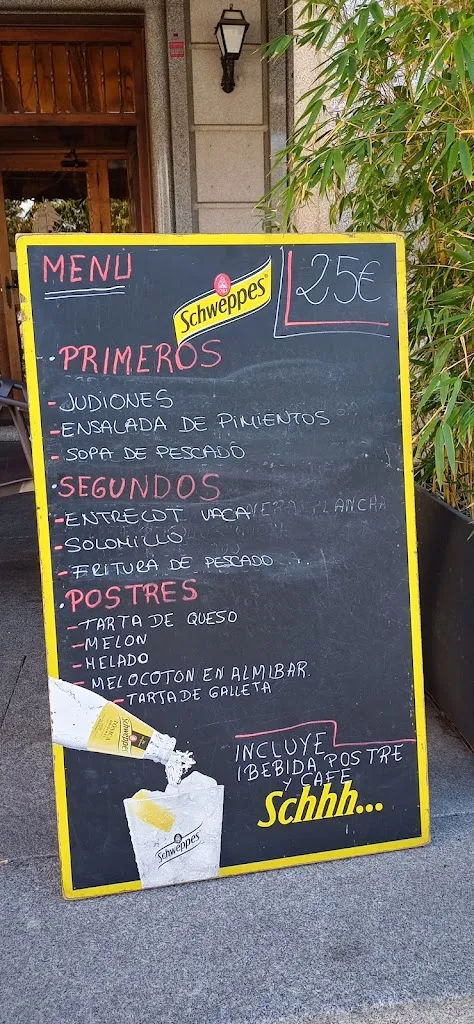 MENU
Schweppes
25€
· PRIMEROS
- JUDIONES
- ENSALADA DE PIMIENTOS
- SOPA DE PESCADO
· SEGUNDOS
- ENTRECOT VACA PLANCHA
- SOLOMILLO
- FRITURA DE PESCADO
· POSTRES
- TARTA DE QUESO
- MELON
- HELADO
- MELOCOTON EN ALMIBAR.
- TARTA DE GALLETA
INCLUYE
1 BEBIDA, POSTRE
Y CAFE
Schhh...
Schweppes
Schweppes